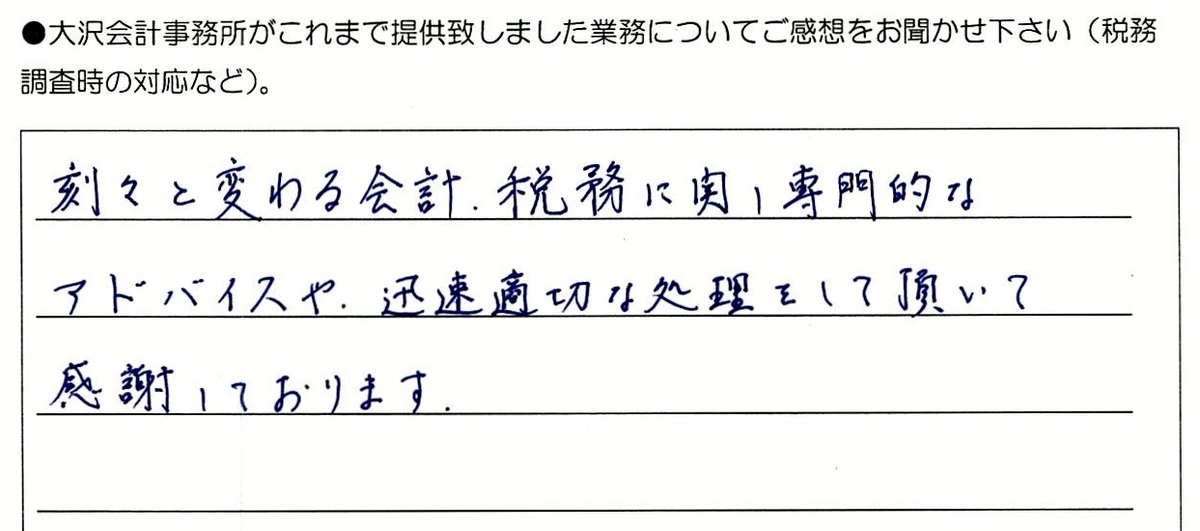 ●大沢会計事務所がこれまで提供致しました業務についてご感想をお聞かせ下さい（税務
調査時の対応など）。
刻々と変わる会計.税務に関し専門的な
アドバイスや.迅速適切な処理をして頂いて
感謝しております.